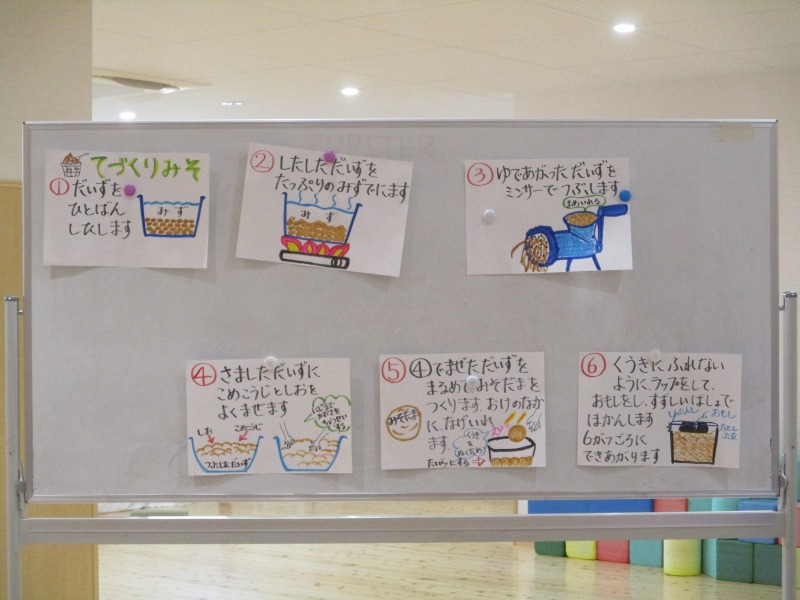 てづくりみそ
① だいずを
ひとばん
したします
みず
② したしただいずを
たっぷりのみずでにます
みず
③ ゆであがっただいずを
ミンサーでつぶします
まめいれる
④ さましただいずに
こめこうじとしおを
よくまぜます
しお
こめこうじ
つぶしただいず
⑤ ④でまぜただいずを
まるめてみそだまを
つくります。おけのなか
に、なげいれ
ます。
みそだま
くうきを
ぬくため
たいらにする
⑥ くうきにふれない
ようにラップをして、
おもしをし、すずしいばしょで
ほかんします
6がつごろに
できあがります
おもし